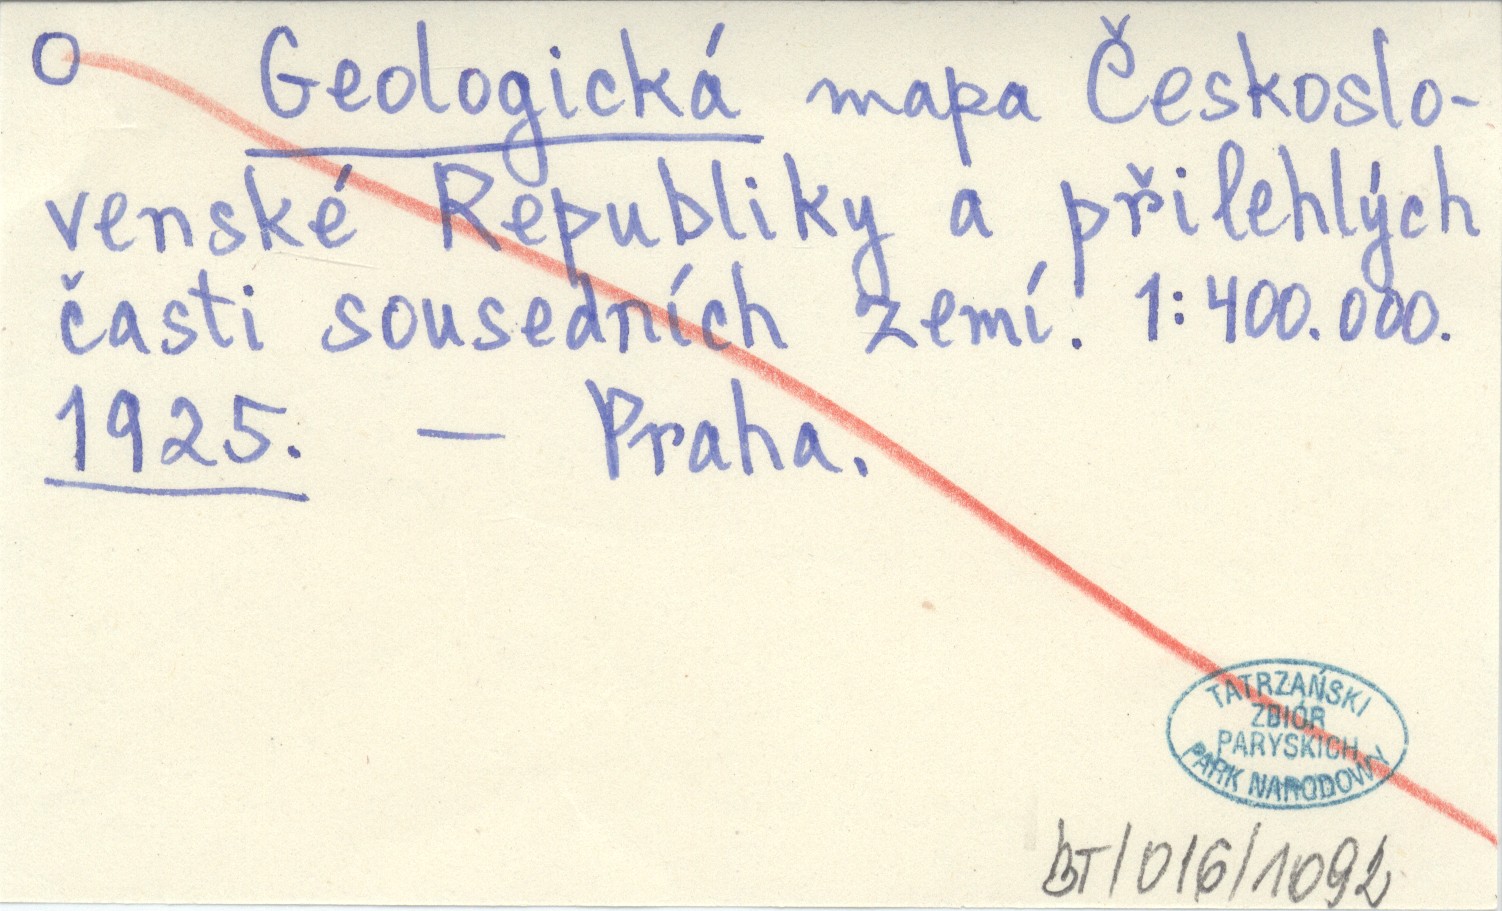 O Geologická mapa Českoslo-
venské Republiky a přilehlých
časti sousedních zemí. 1:400.000.
1925. — Praha.
TATRZAŃSKI
ZBIÓR
PARYSKICH
PARK NARODOWY
BT/016/1092